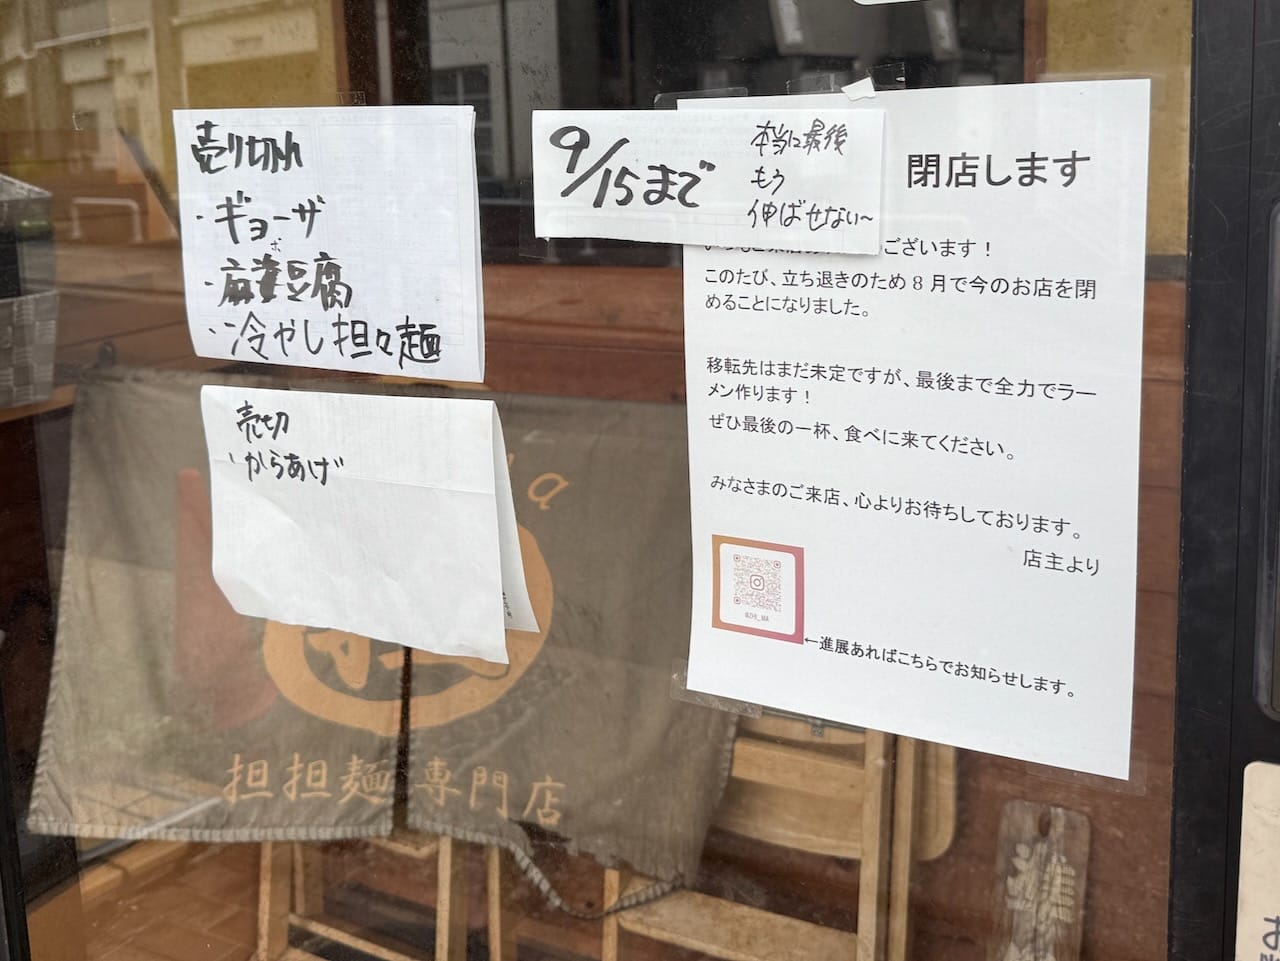 売り切れ
・ギョーザ
ポ
・麻婆豆腐
・冷やし担々麺
売切
・からあげ
9/15まで
本当に最後
もう
伸ばせない〜
閉店します
ございます！
このたび、立ち退きのため8月で今のお店を閉
めることになりました。
移転先はまだ未定ですが、最後まで全力でラー
メン作ります！
ぜひ最後の一杯、食べに来てください。
みなさまのご来店、心よりお待ちしております。
店主より
@ZHI_MA
←進展あればこちらでお知らせします。
a
担担麺専門店